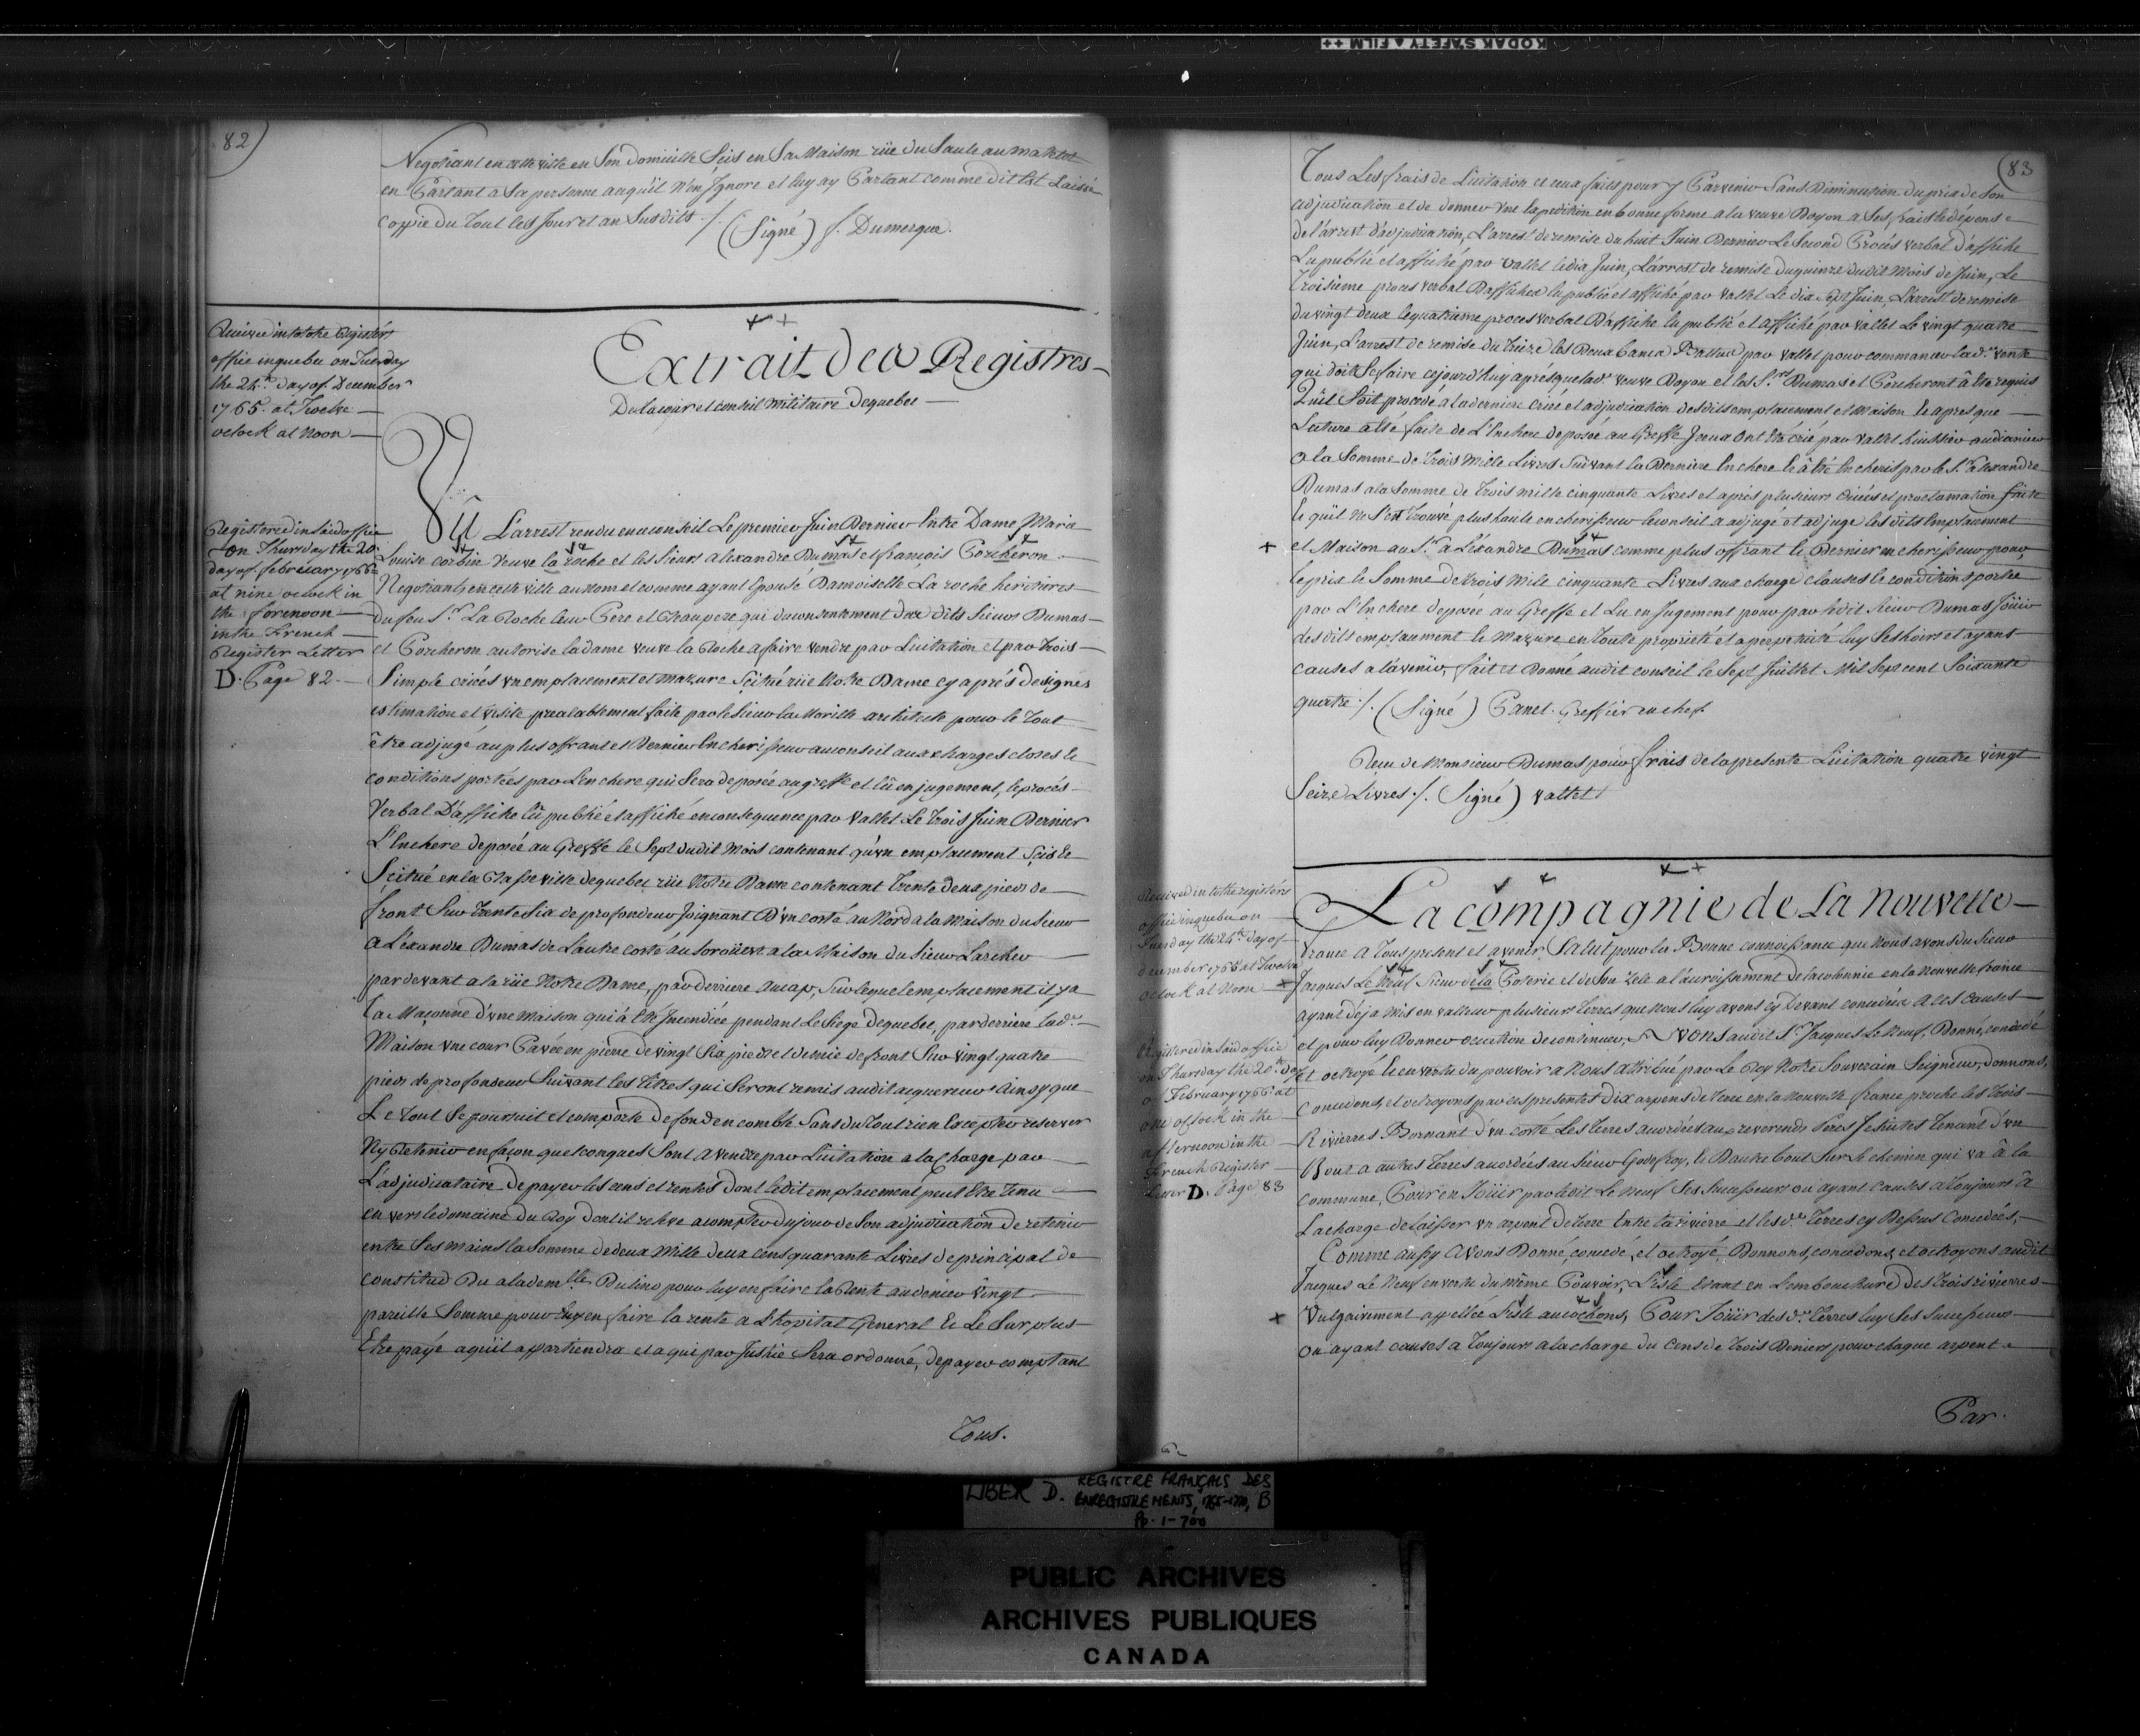 KODAK SAFETY FILM ++
82)
Negotiant en cette ville en son domicille Scis en Sa Maison rüe du Saule au matelot
en Parlant a Sa personne auquil n'en Jgnore et luy ay Parlant comme dit Est Laissé
coppie du Tout les Jour et an Susdits ./. (Signé) f. Dumergue.
Received into the Register
office in quebec on Tuesday
the 24th. day of December
1765. at Twelve
oclock at Noon
Extrait des Registres
De la cour et conseil militaire de quebec
Registered in Said office
on Thursday the 20
day of february 1766
at nine oclock in
the forenoon
in the French
Register Letter
D. Page 82.
Vû L'arrest rendu en ce conseil Le premier Juin Dernier Entre Dame Marie
Louise corbin Veuve la roche et les Sieurs alexandre Dumas et françois Porcheron
Negotiants en cette ville au nom et comme ayant Epousé Damoiselle La roche heritieres
du feu Sr. La Roche leur Pere et Beaupere qui du consentement des dits Sieurs Dumas
et Porcheron autorise la dame veuve la Roche a faire vendre par Licitation et par trois
Simple criées un emplacement et mazure Scitué rüe Notre Dame cy aprés designés
estimation et visite prealablement faite par le Sieur la Morille architecte pour le tout
être adjugé au plus offrant et Dernier Encherisseur au conseil aux charges closes Et
conditions portées par L'enchere qui Sera deposée au greffe et lû en jugement, le procés
Verbal D'affiche lû publié et affiché en consequence par Vallet Le trois Juin Dernier
L'Enchere deposée au Greffe le Sept dudit Mois contenant qu'un emplacement Scis Et
Scitué en la Basse ville de quebec rüe Notre Dame contenant Trente deux pieds de
front Sur trente Six de profondeur Joignant D'un costé au Nord a la maison du Sieur
a Léxandre Dumas de L'autre costé au Sorouest a la Maison du Sieur Larcher
par devant a la rüe Notre Dame, par derriere au cap, Sur lequel emplacement il y a
La Maçonne d'une Maison qui a été Jncendiée pendant Le Siege de quebec, par derriere lade.
Maison une cour Pavée en pierre de vingt Six pieds et demie de front Sur vingt quatre
pieds de profondeur Suivant les Titres qui Seront remis audit acquereur Ainsy que
Le tout Se poursuit et comporte De fond en comble Sans du tout rien Excepter reserver
Ny Retenir en façon quelconques Sont a Vendre par Licitation a la Charge par
L'adjudicataire De payer les cens et rentes dont ledit emplacement peut Etre tenu
en vers le domaine du Roy dont il releve a compter du jour de Son adjudication De retenir
entre Ses mains la Somme de deux Mille deux cens quarante Livres de principal de
constitud Du a la demlle. Duline pour luy en faire la Rente au denier Vingt
pareille Somme pour luy en faire la rente a L'hopital General Et Le Surplus
Etre payé a quil appartiendra et a qui par Justice Sera ordonné, de payer comptant
Tous.
83
Tous Les frais de Licitation et ceux faits pour y Parvenir Sans Diminution du prix de Son
adjudication et de donner Une Expedition en bonne forme a la veuve Doyon a Ses frais Et dépens
de l'arrest d'adjudication, L'arrest de remise du huit Juin Dernier Le Second Procés verbal D'affiche
Lu publié et affiché par Vallet le dix Juin, L'arrest de remise du quinze dudit Mois de Juin, Le
Troisieme proces verbal D'affiches lu publié et affiché par Vallet Le dix Sept Juin, L'arrest de remise
du vingt deux le quatrieme proces verbal D'affiche lu publié et affiché par Vallet Le vingt quatre
Juin, L'arrest de remise du treize les Deux par vallet pour commancer la de. vente
qui doit Se faire ce jourd'huy aprés que lade. veuve Doyon et les Srs. Dumas et Porcheront a Ete requis
Qu'il Soit procedé a la derniere criée et adjudication desdits emplacement et Maison Et apres que
Lecture a été faite de L'Enchere deposée au Greffe Jceux ont Eté crié par Vallet huissier audiancier
a la Somme de trois Mille Livres Suivant la Derniere Enchere Et a été Encheris par le Sr. alexandre
Dumas a la Somme de trois mille cinquante Livres et aprés plusieurs Criées et proclamation faite
Et quil ne s'est trouvé plus haute encherisseur le conseil a adjugé et adjuge les dits Emplacement
et Maison au Sr. a Léxandre Dumas comme plus offrant Et Dernier encherisseur pour
le prix Et Somme De trois Mile cinquante Livres aux charge clauses Et condition portée
par L'Enchere deposée au Greffe et Lu en Jugement pour par ledit Sieur Dumas Jouir
desdits emplacement Et Mazure en toute proprieté et a perpetuité luy Ses hoirs et ayans
causes a l'avenir, fait et Donné audit conseil le Sept Juillet Mil Sept cent Soixante
quatre ./. (Signé) Panet. Greffier en chef.
Reçu de Monsieur Dumas pour frais de la presente Licitation quatre vingt
Seize Livres ./. (Signé) Vallet
Received into the registers
office in quebec on
Tuesday the 24th. day of
december 1765 at Twelve
oclock at Noon
Registered in Said office
on Thursday the 20th. day
of February 1766 at
one oClock in the
afternoon in the
French Register
Letter D. Page 83
La compagnie de La nouvelle
france a Tous present et avenir, Salut pour la Bonne connoissance que Nous avons du Sieur
Jacques Le Neuf Sieur de la Poterie et de Son Zele a l'accroissement de la colonnie en la nouvelle france
ayant déja mis en valleur plusieurs terres que Nous luy avons cy Devant concedées a Ces causes
et pour luy Donner occasion de continuer, Avons audit Sr. Jacques Le Neuf, Donné, concedé
et octroyé Et en vertu du pouvoir a Nous attribué par Le Roy Notre Souverain Seigneur, Donnons,
Concedons, et octroyons par ces presentes Dix arpens de terre en la Nouvelle france proche les trois
Rivierres Bornant d'un costé Les terres accordées aux reverends Peres Jesuites Tenant d'un
Bout a autres terres accordées au Sieur Godefroy, Et D'autre bout Sur Le chemin qui va à la
commune, Pour en Joüir par ledit Le Neuf Ses Successeurs ou ayant causes a toujours à
La charge de laisser un arpent de terre Entre la rivierre et lesdes. terres cy Dessus Concedées,
Comme aussy Avons Donné, concedé, et octroyé, Donnons, concedons, et octroyons audit
Jacques Le Neuf en vertu du même Pouvoir, L'isle Etant en L'embouchure des trois rivierres
Vulgairement appellée L'isle aux cochons, Pour Joüir des de. terres luy Ses Successeurs
ou ayant causes a toujours a la charge du Cens de trois Deniers pour chaque arpent
Par.
LIBER D. REGISTRE FRANÇAIS DES
ENREGISTREMENTS, 1765-1770, B
Pp. 1-700
PUBLIC ARCHIVES
ARCHIVES PUBLIQUES
CANADA